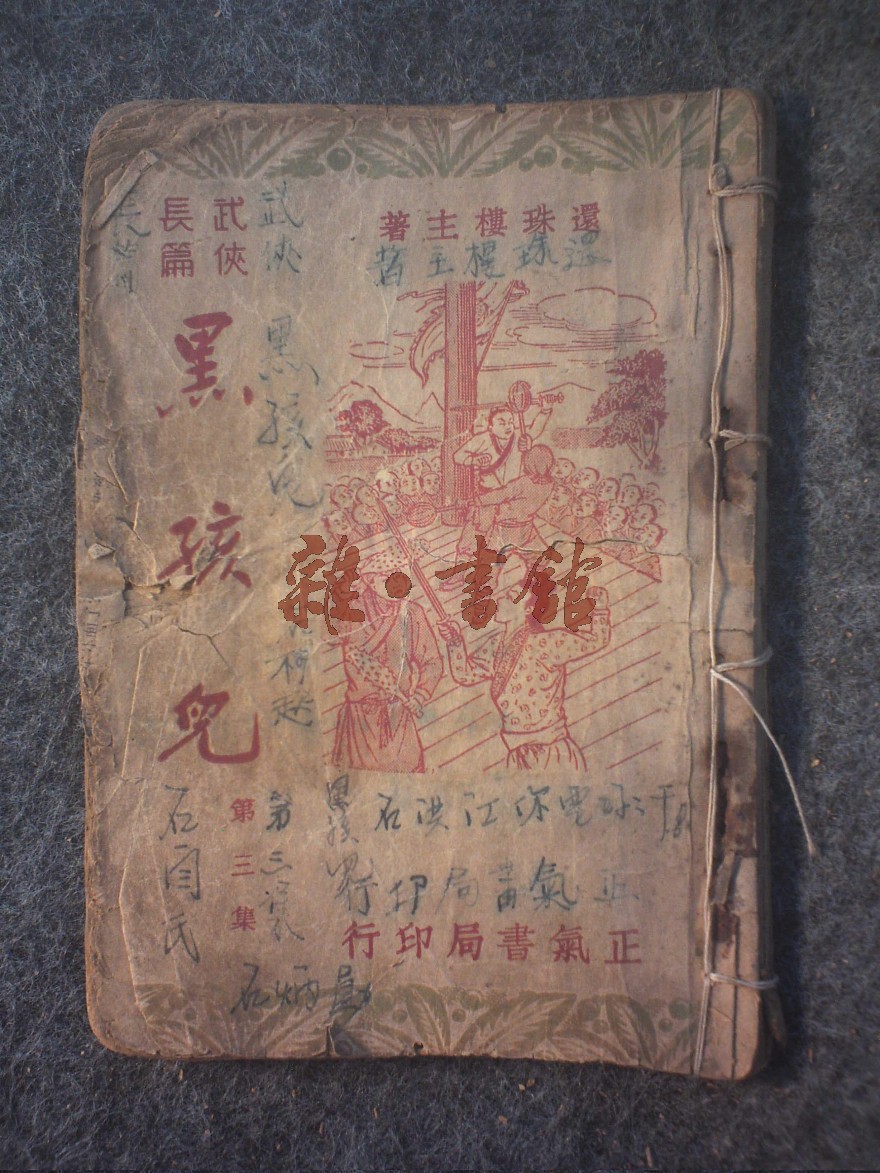 還珠樓主著
還珠樓主著
武俠
長篇
武俠
黑孩兒
黑孩兒
雜·書館
第三集
第三集
黑孩兒
石洪江
正氣書局印行
正氣書局印行
石炳勛